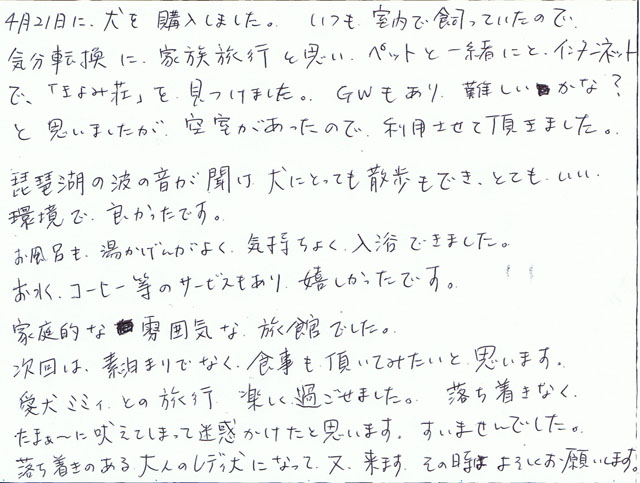 4月21日に、犬を購入しました。いつも室内で飼っていたので、
気分転換に、家族旅行と思い、ペットと一緒にと、インターネット
で、「きよみ荘」を見つけました。GWもあり、難しいかな？
と思いましたが、空室があったので、利用させて頂きました。
琵琶湖の波の音が聞け、犬にとっても散歩もでき、とてもいい
環境で、良かったです。
お風呂も、湯かげんがよく、気持ちよく、入浴できました。
お水、コーヒー等のサービスもあり、嬉しかったです。
家庭的な雰囲気な旅館でした。
次回は、素泊まりでなく、食事も頂いてみたいと思います。
愛犬ミミィとの旅行、楽しく過ごせました。落ち着きなく、
たまぁ～に吠えてしまって迷惑かけたと思います。すいませんでした。
落ち着きのある大人のレディ犬になって、又、来ます。その時はよろしくお願いします。